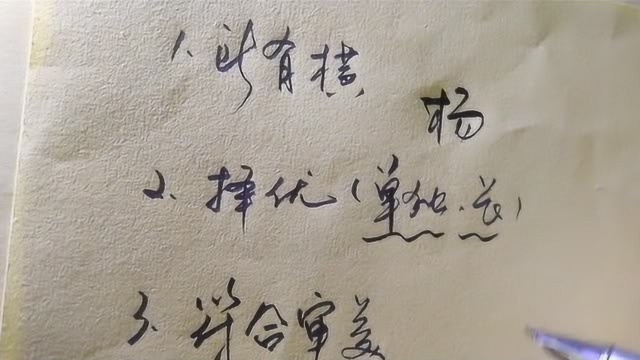 1. 所有横
杨
2. 择优(单独、总)
3. 符合审美